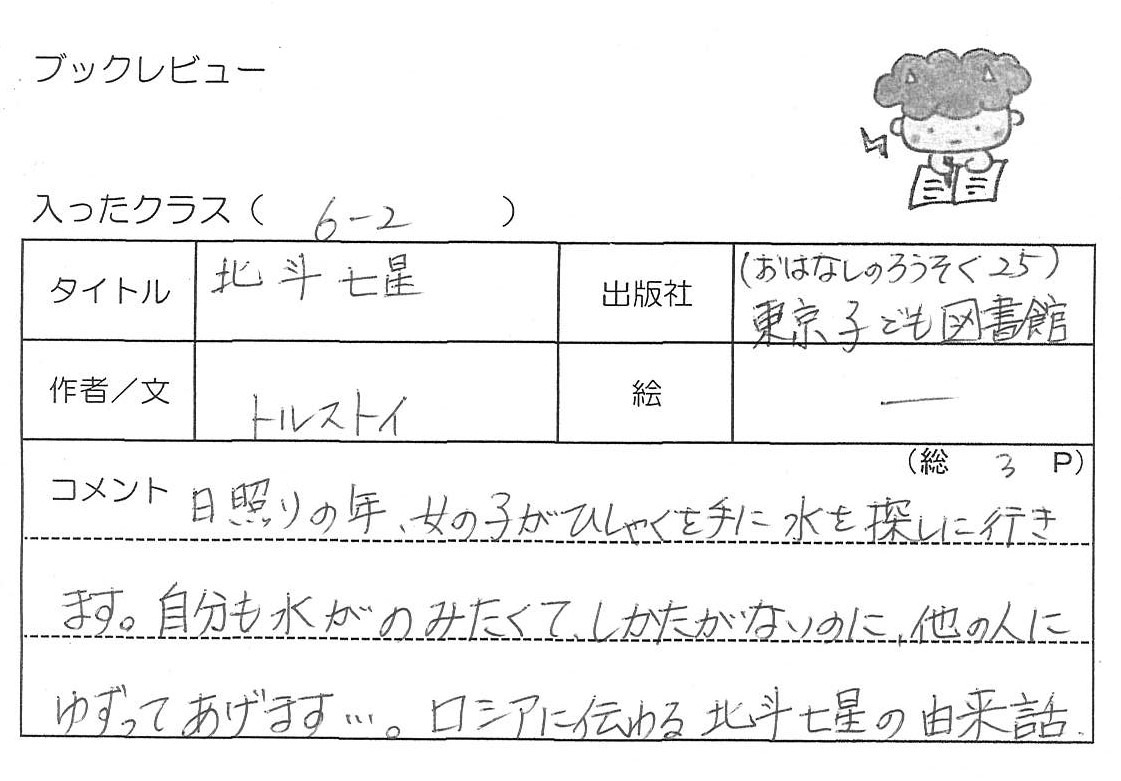 ブックレビュー
入ったクラス( 6-2 )
タイトル 北斗七星 出版社 (おはなしのろうそく25)
東京子ども図書館
作者/文 トルストイ 絵 ―
(総 3 P)
コメント 日照りの年、女の子がひしゃくを手に水を探しに行き
ます。自分も水がのみたくて、しかたがないのに、他の人に
ゆずってあげます…。ロシアに伝わる北斗七星の由来話.